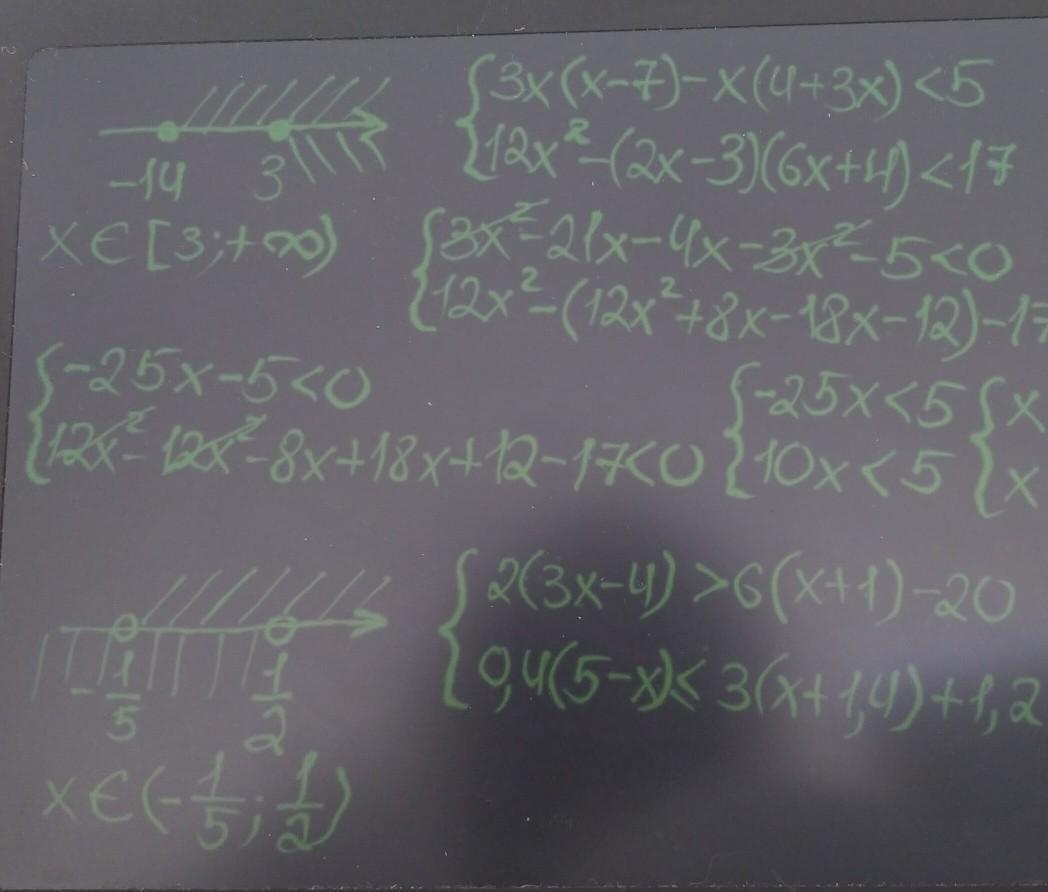 -14 3
x ∈ [3;+∞)
{ 3x(x-7)-x(4+3x)<5
12x²-(2x-3)(6x+4)<17
{ 3x²-21x-4x-3x²-5<0
12x²-(12x²+8x-18x-12)-17
{ -25x-5<0
12x²-12x²-8x+18x+12-17<0
{ -25x<5
10x<5
{ x
x
-1/5 1/2
x ∈ (-1/5; 1/2)
{ 2(3x-4)>6(x+1)-20
0,4(5-x)< 3(x+1,4)+1,2